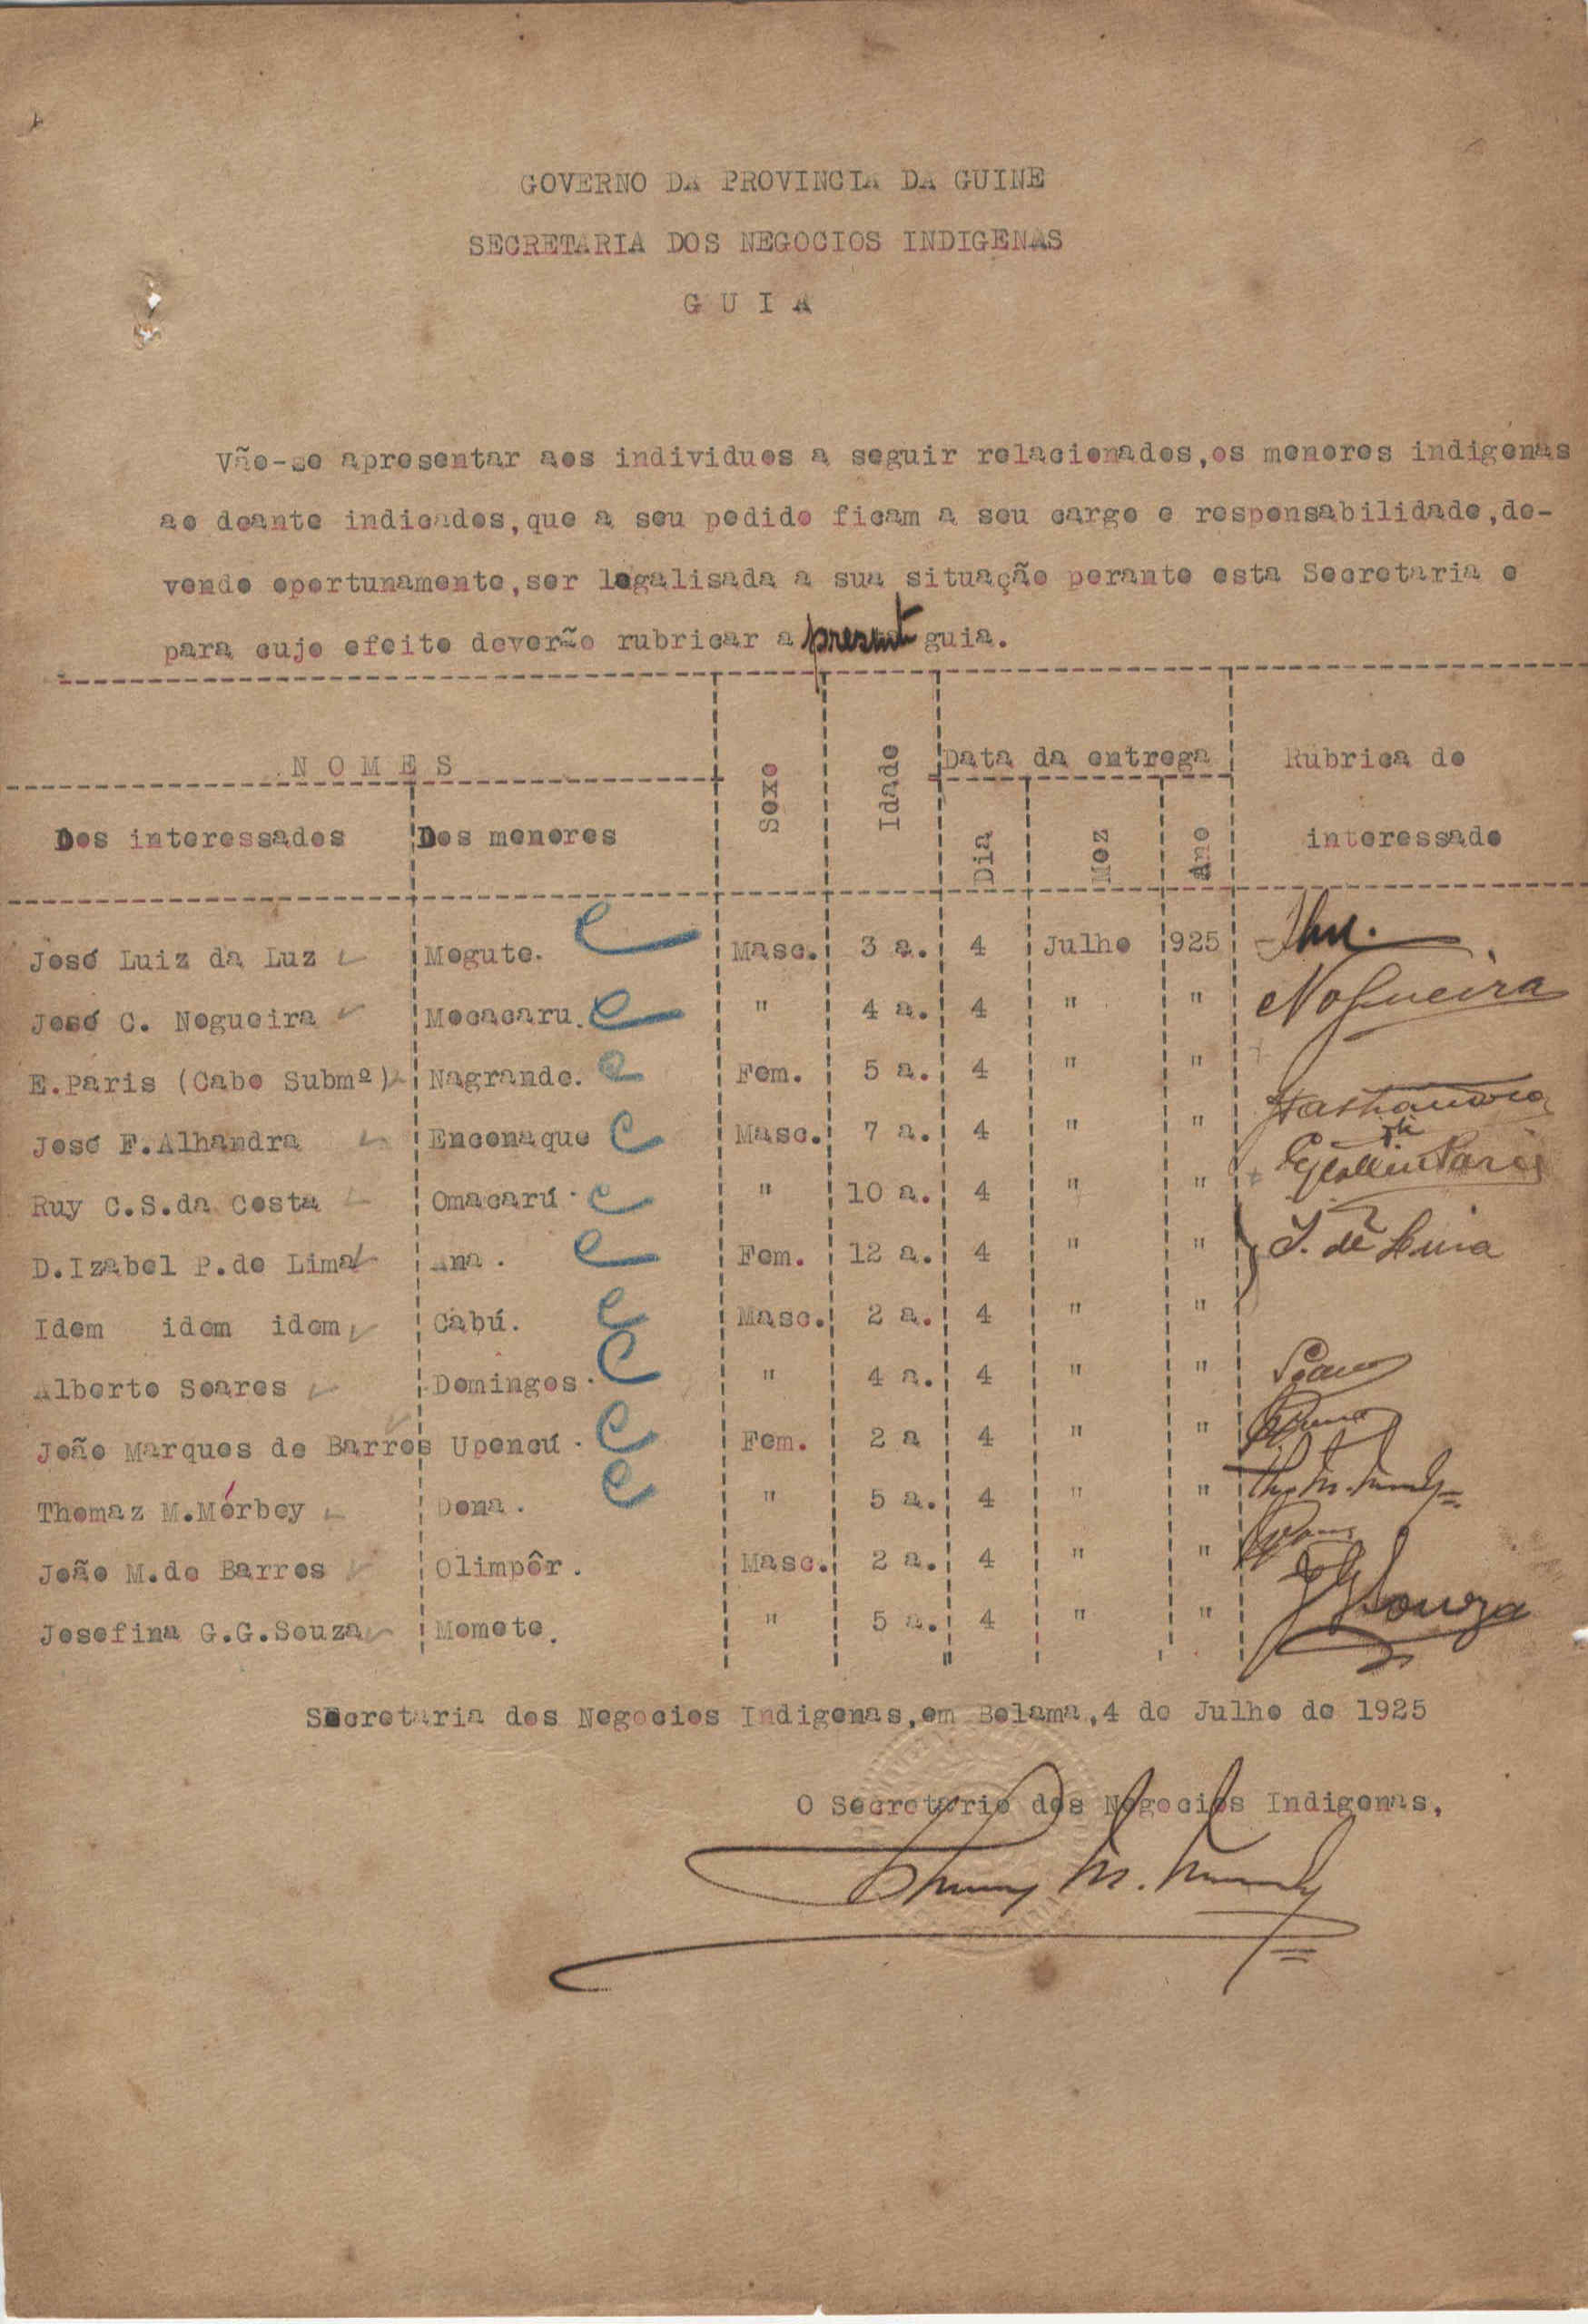 GOVERNO DA PROVINCIA DA GUINE
SECRETARIA DOS NEGOCIOS INDIGENAS
G U I A
Vão-se apresentar aos individuos a seguir relacionados,os menores indigenas
ao deante indicados,que a seu pedido ficam a seu cargo e responsabilidade,de-
vendo oportunamente,ser legalisada a sua situação perante esta Secretaria e
para cujo efeito deverão rubricar a presente guia.
N O M E S Sexo Idade Data da entrega Rubrica do
Dos interessados Dos menores Dia Mez Ano interessado
José Luiz da Luz Mogute. Masc. 3 a. 4 Julho 925
José C. Nogueira Mocacaru. " 4 a. 4 " " Nogueira
E.Paris (Cabo Submº) Nagrande. Fem. 5 a. 4 " "
José F.Alhandra Enconaque Masc. 7 a. 4 " "
Ruy C.S.da Costa Omacarú. " 10 a. 4 " " Paris
D.Izabel P.de Lima Ana. Fem. 12 a. 4 " " I. de Lima
Idem idem idem Cabú. Masc. 2 a. 4 " "
Alberto Soares Domingos. " 4 a. 4 " " Soares
João Marques de Barros Upencú. Fem. 2 a 4 " "
Thomaz M.Mérbey Dona. " 5 a. 4 " "
João M.de Barros Olimpôr. Masc. 2 a. 4 " "
Josefina G.G.Souza Momote. " 5 a. 4 " " Souza
Secretaria dos Negocios Indigenas,em Bolama,4 de Julho de 1925
O Secretario dos Negocios Indigenas,